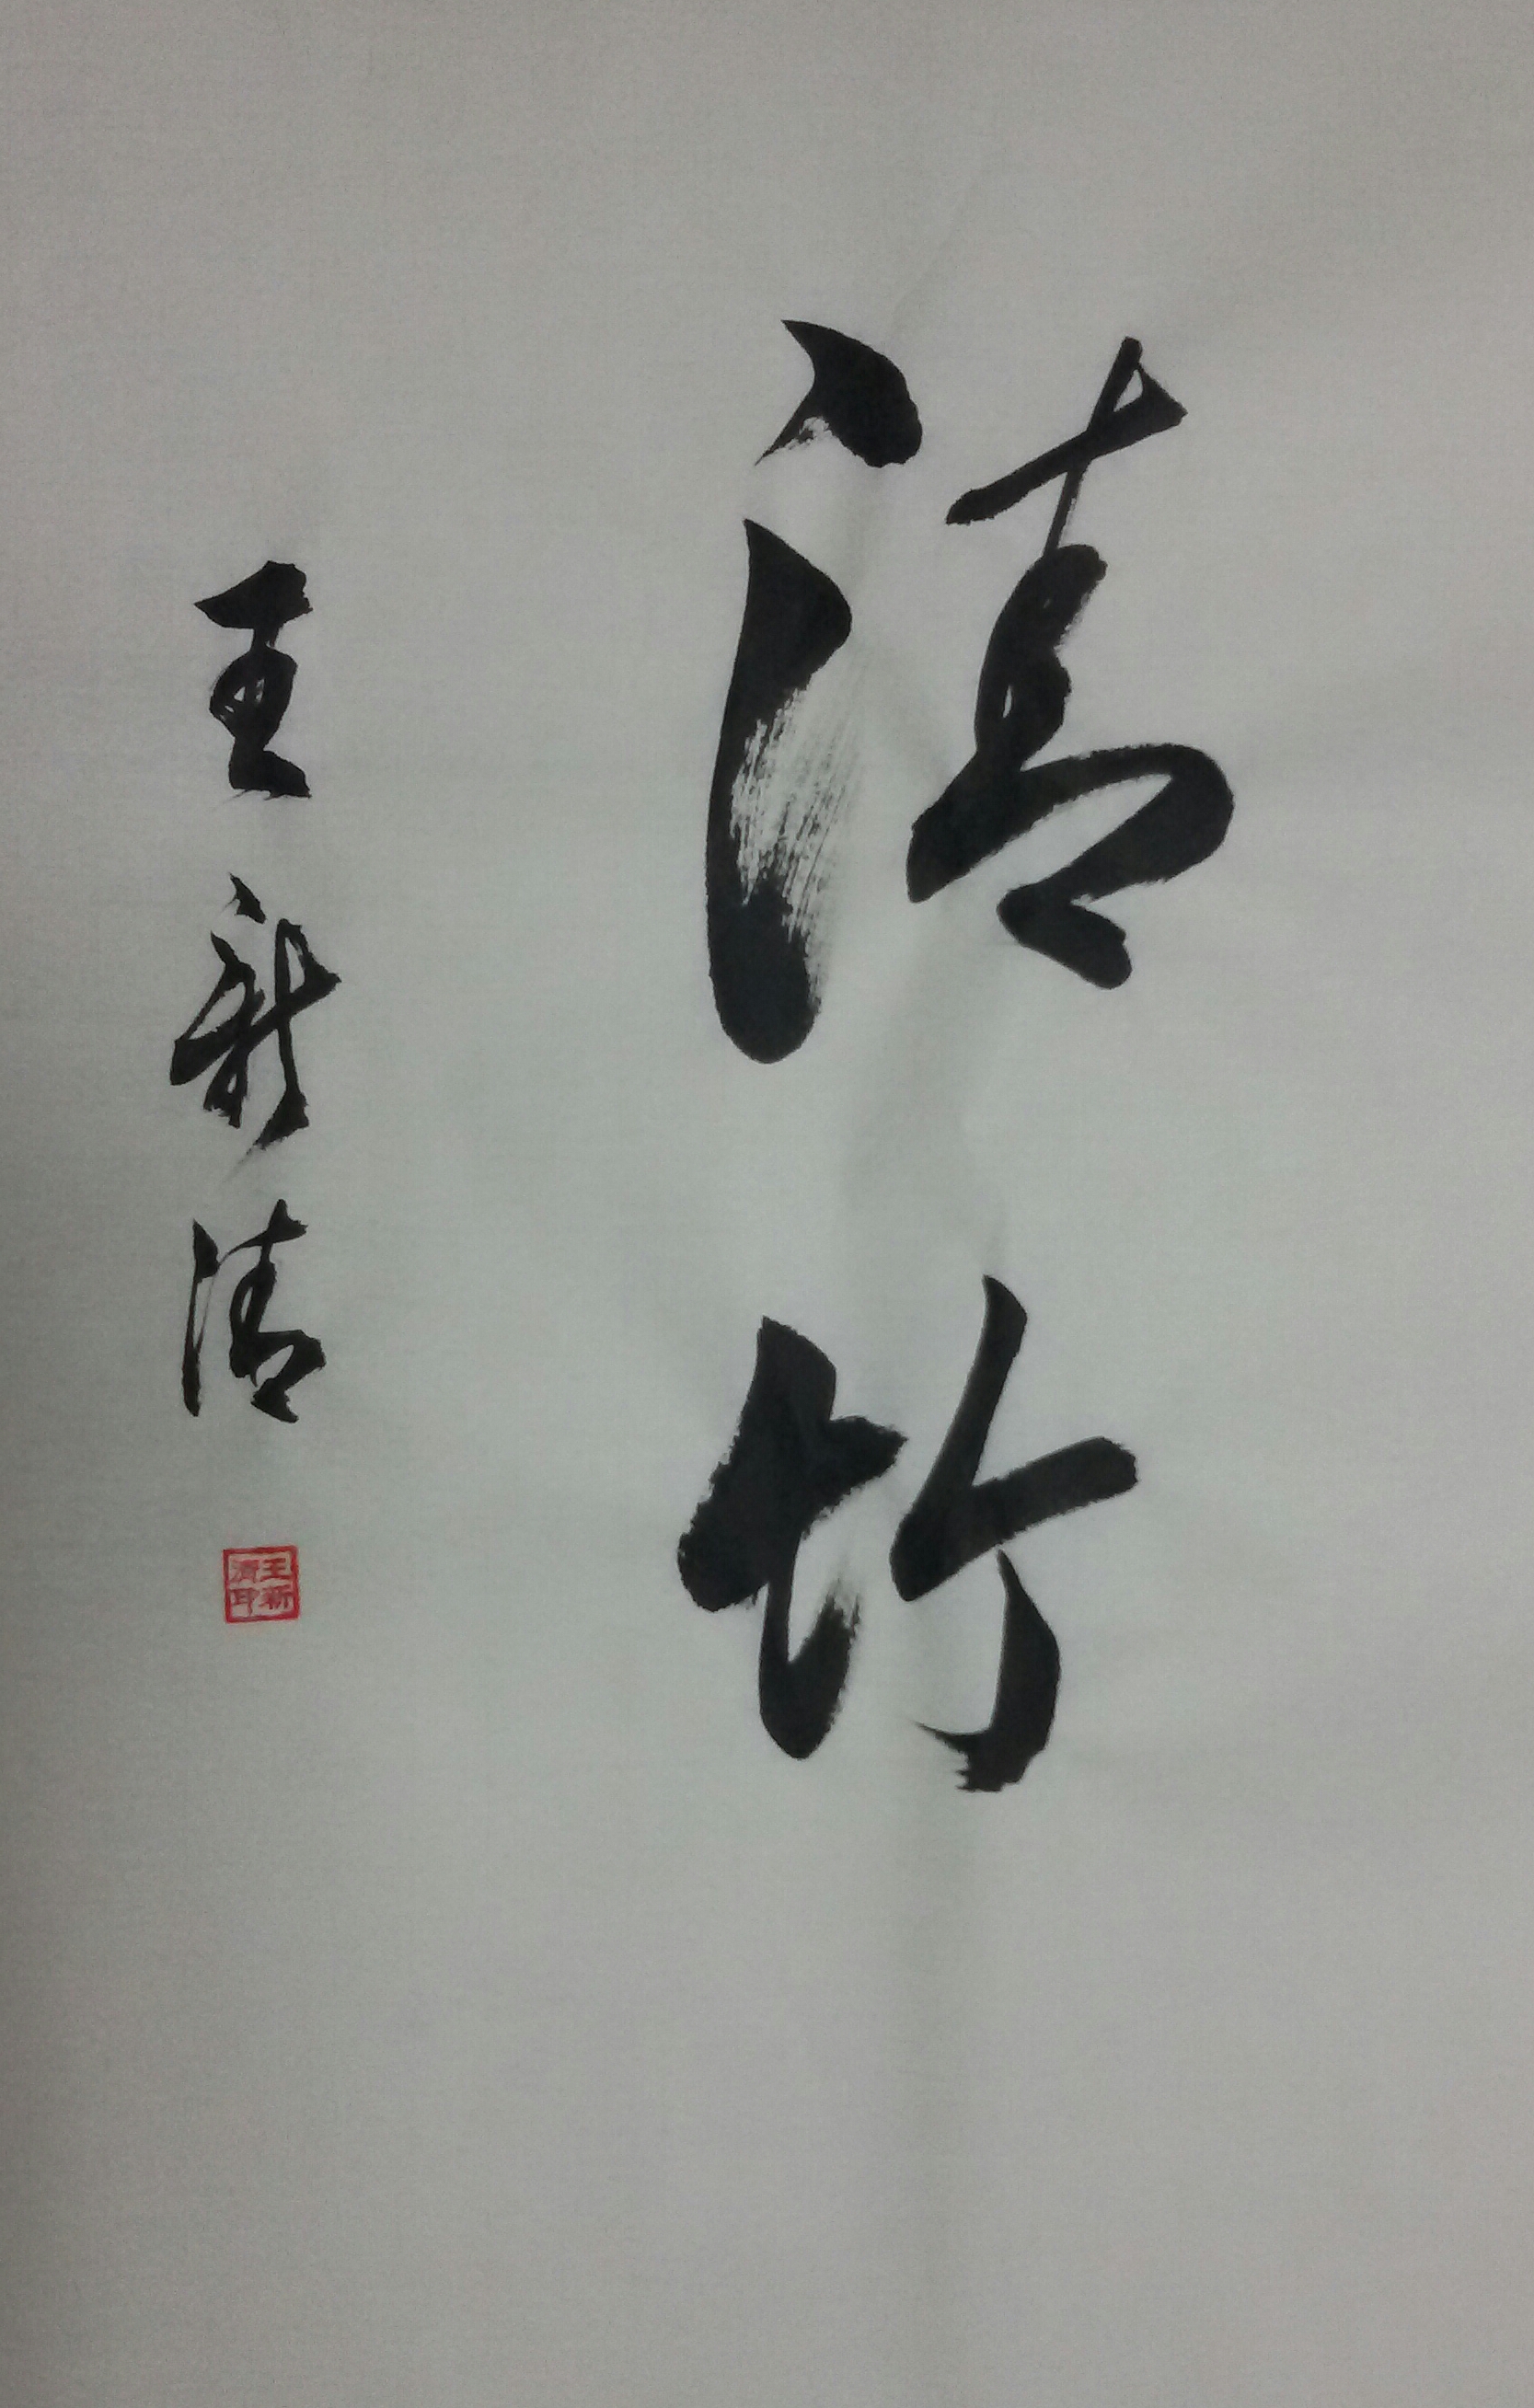 清竹
王新清
王新
清印